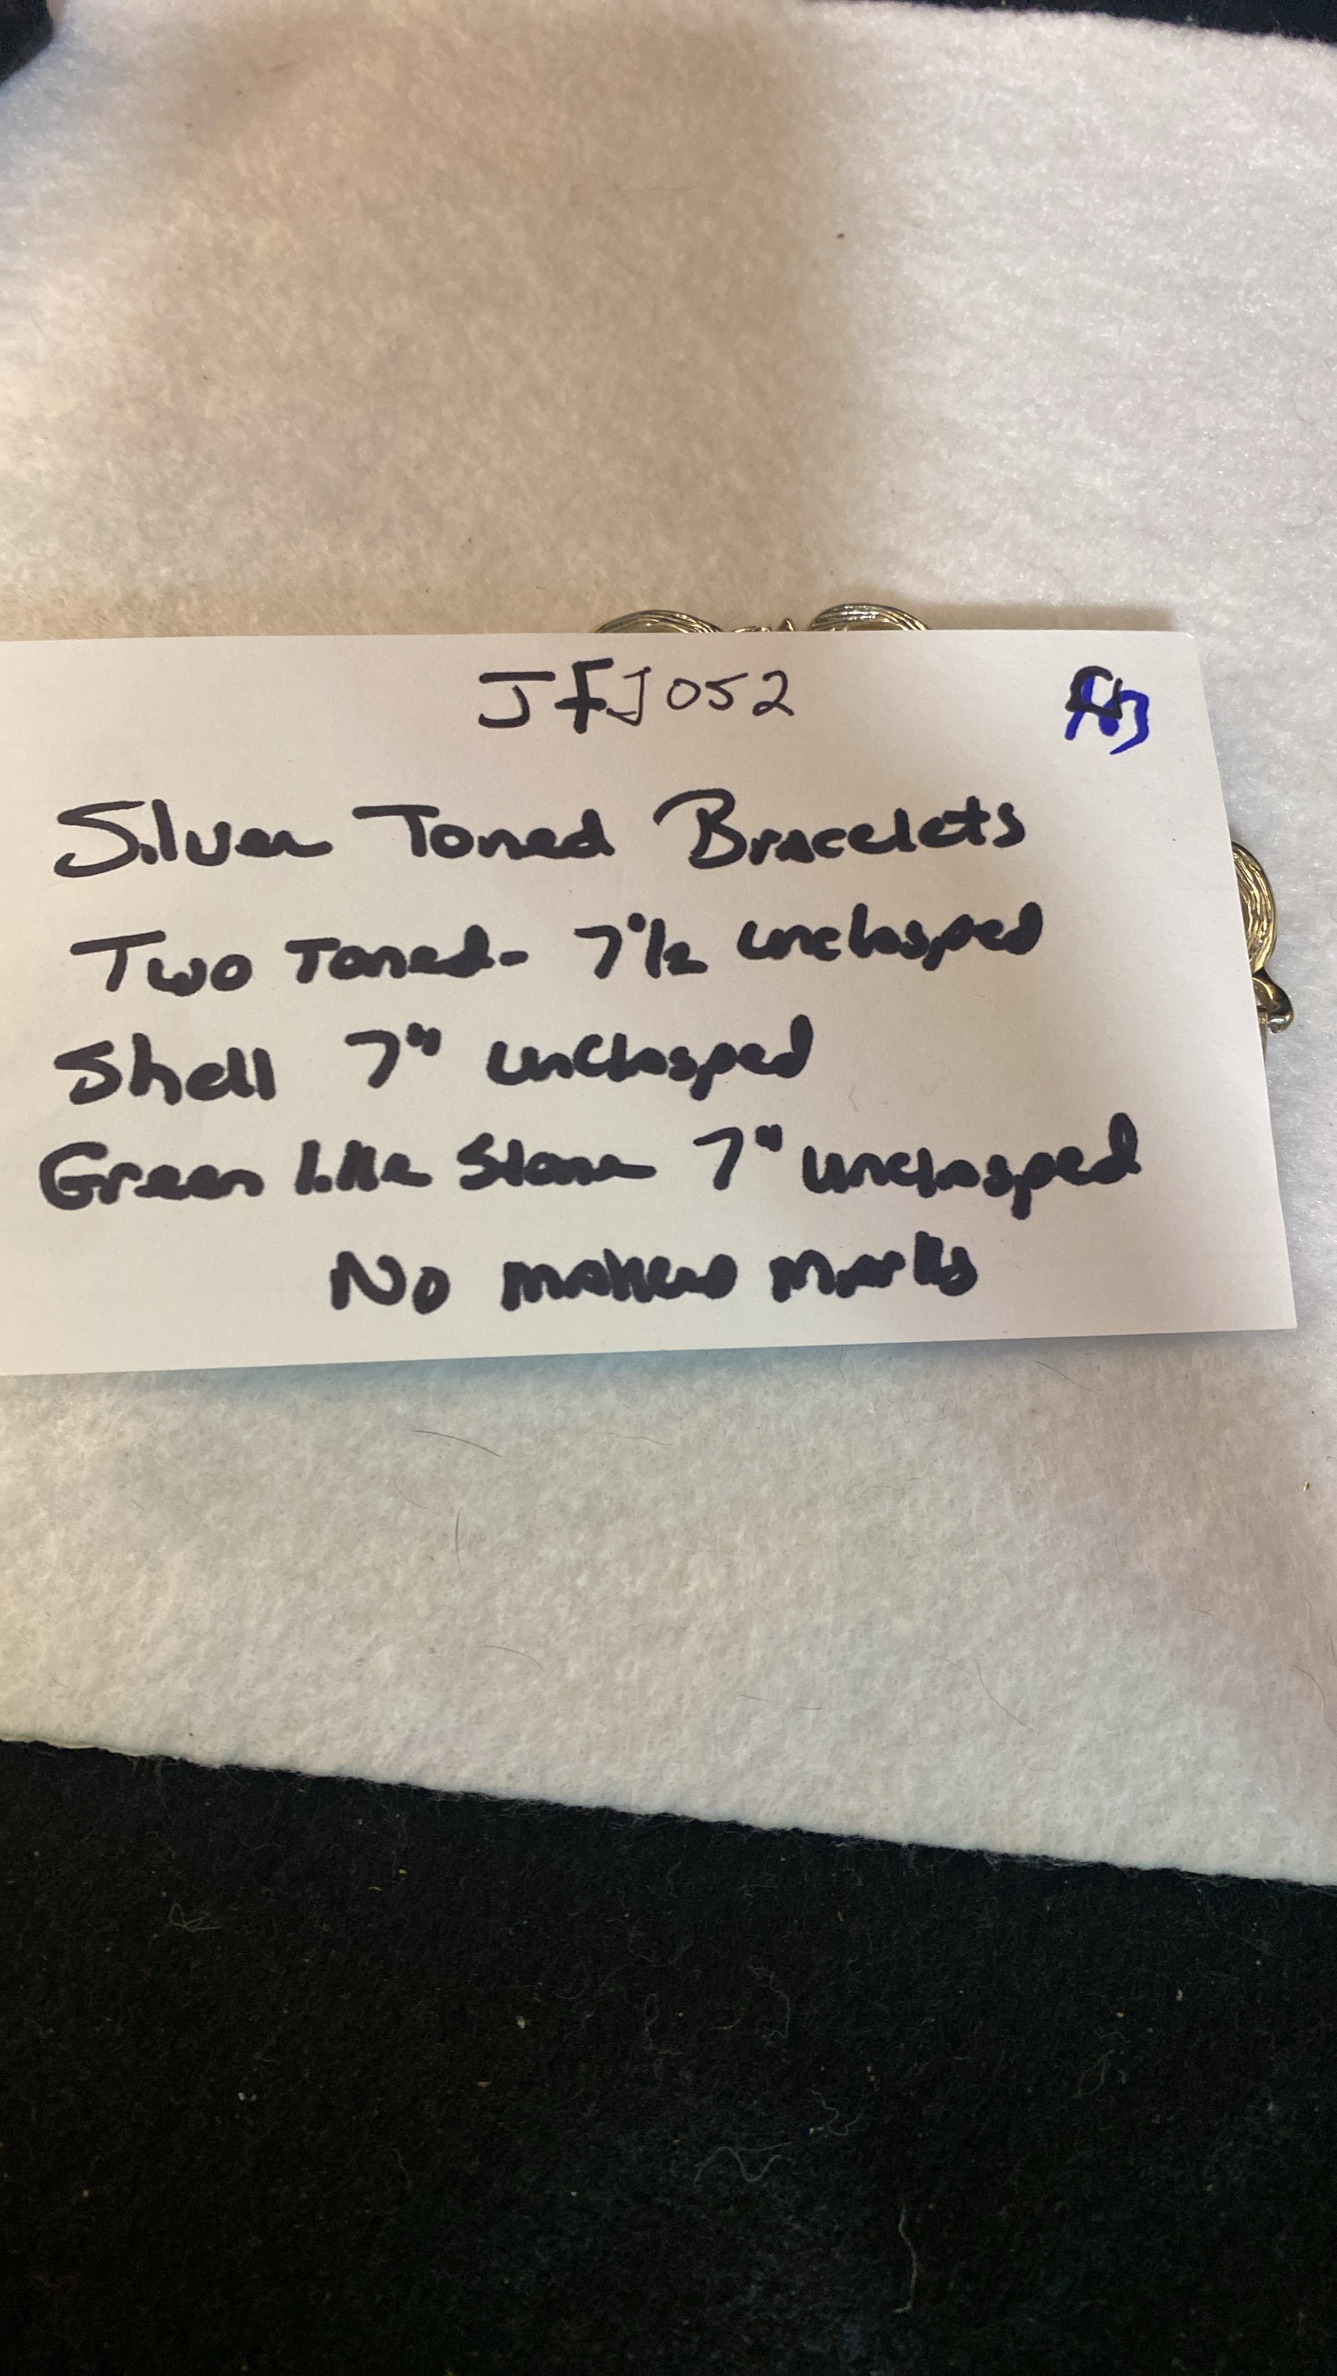 JFJ052
Silver Toned Bracelets
Two Toned- 7 1/2 unclasped
Shell 7" unclasped
Green like Stone 7" unclasped
No makers marks